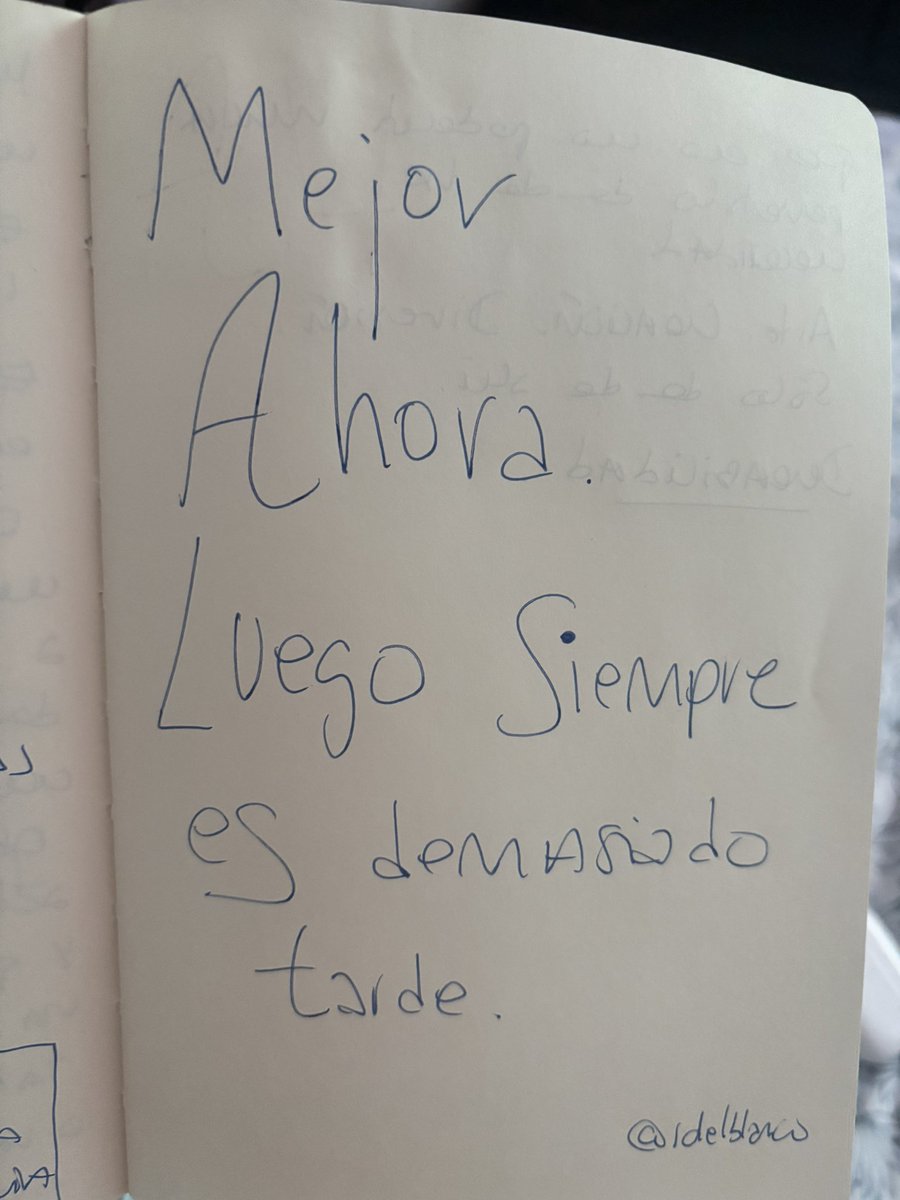 Mejor
Ahora.
Luego Siempre
es demasiado
tarde.
@rdelblanco